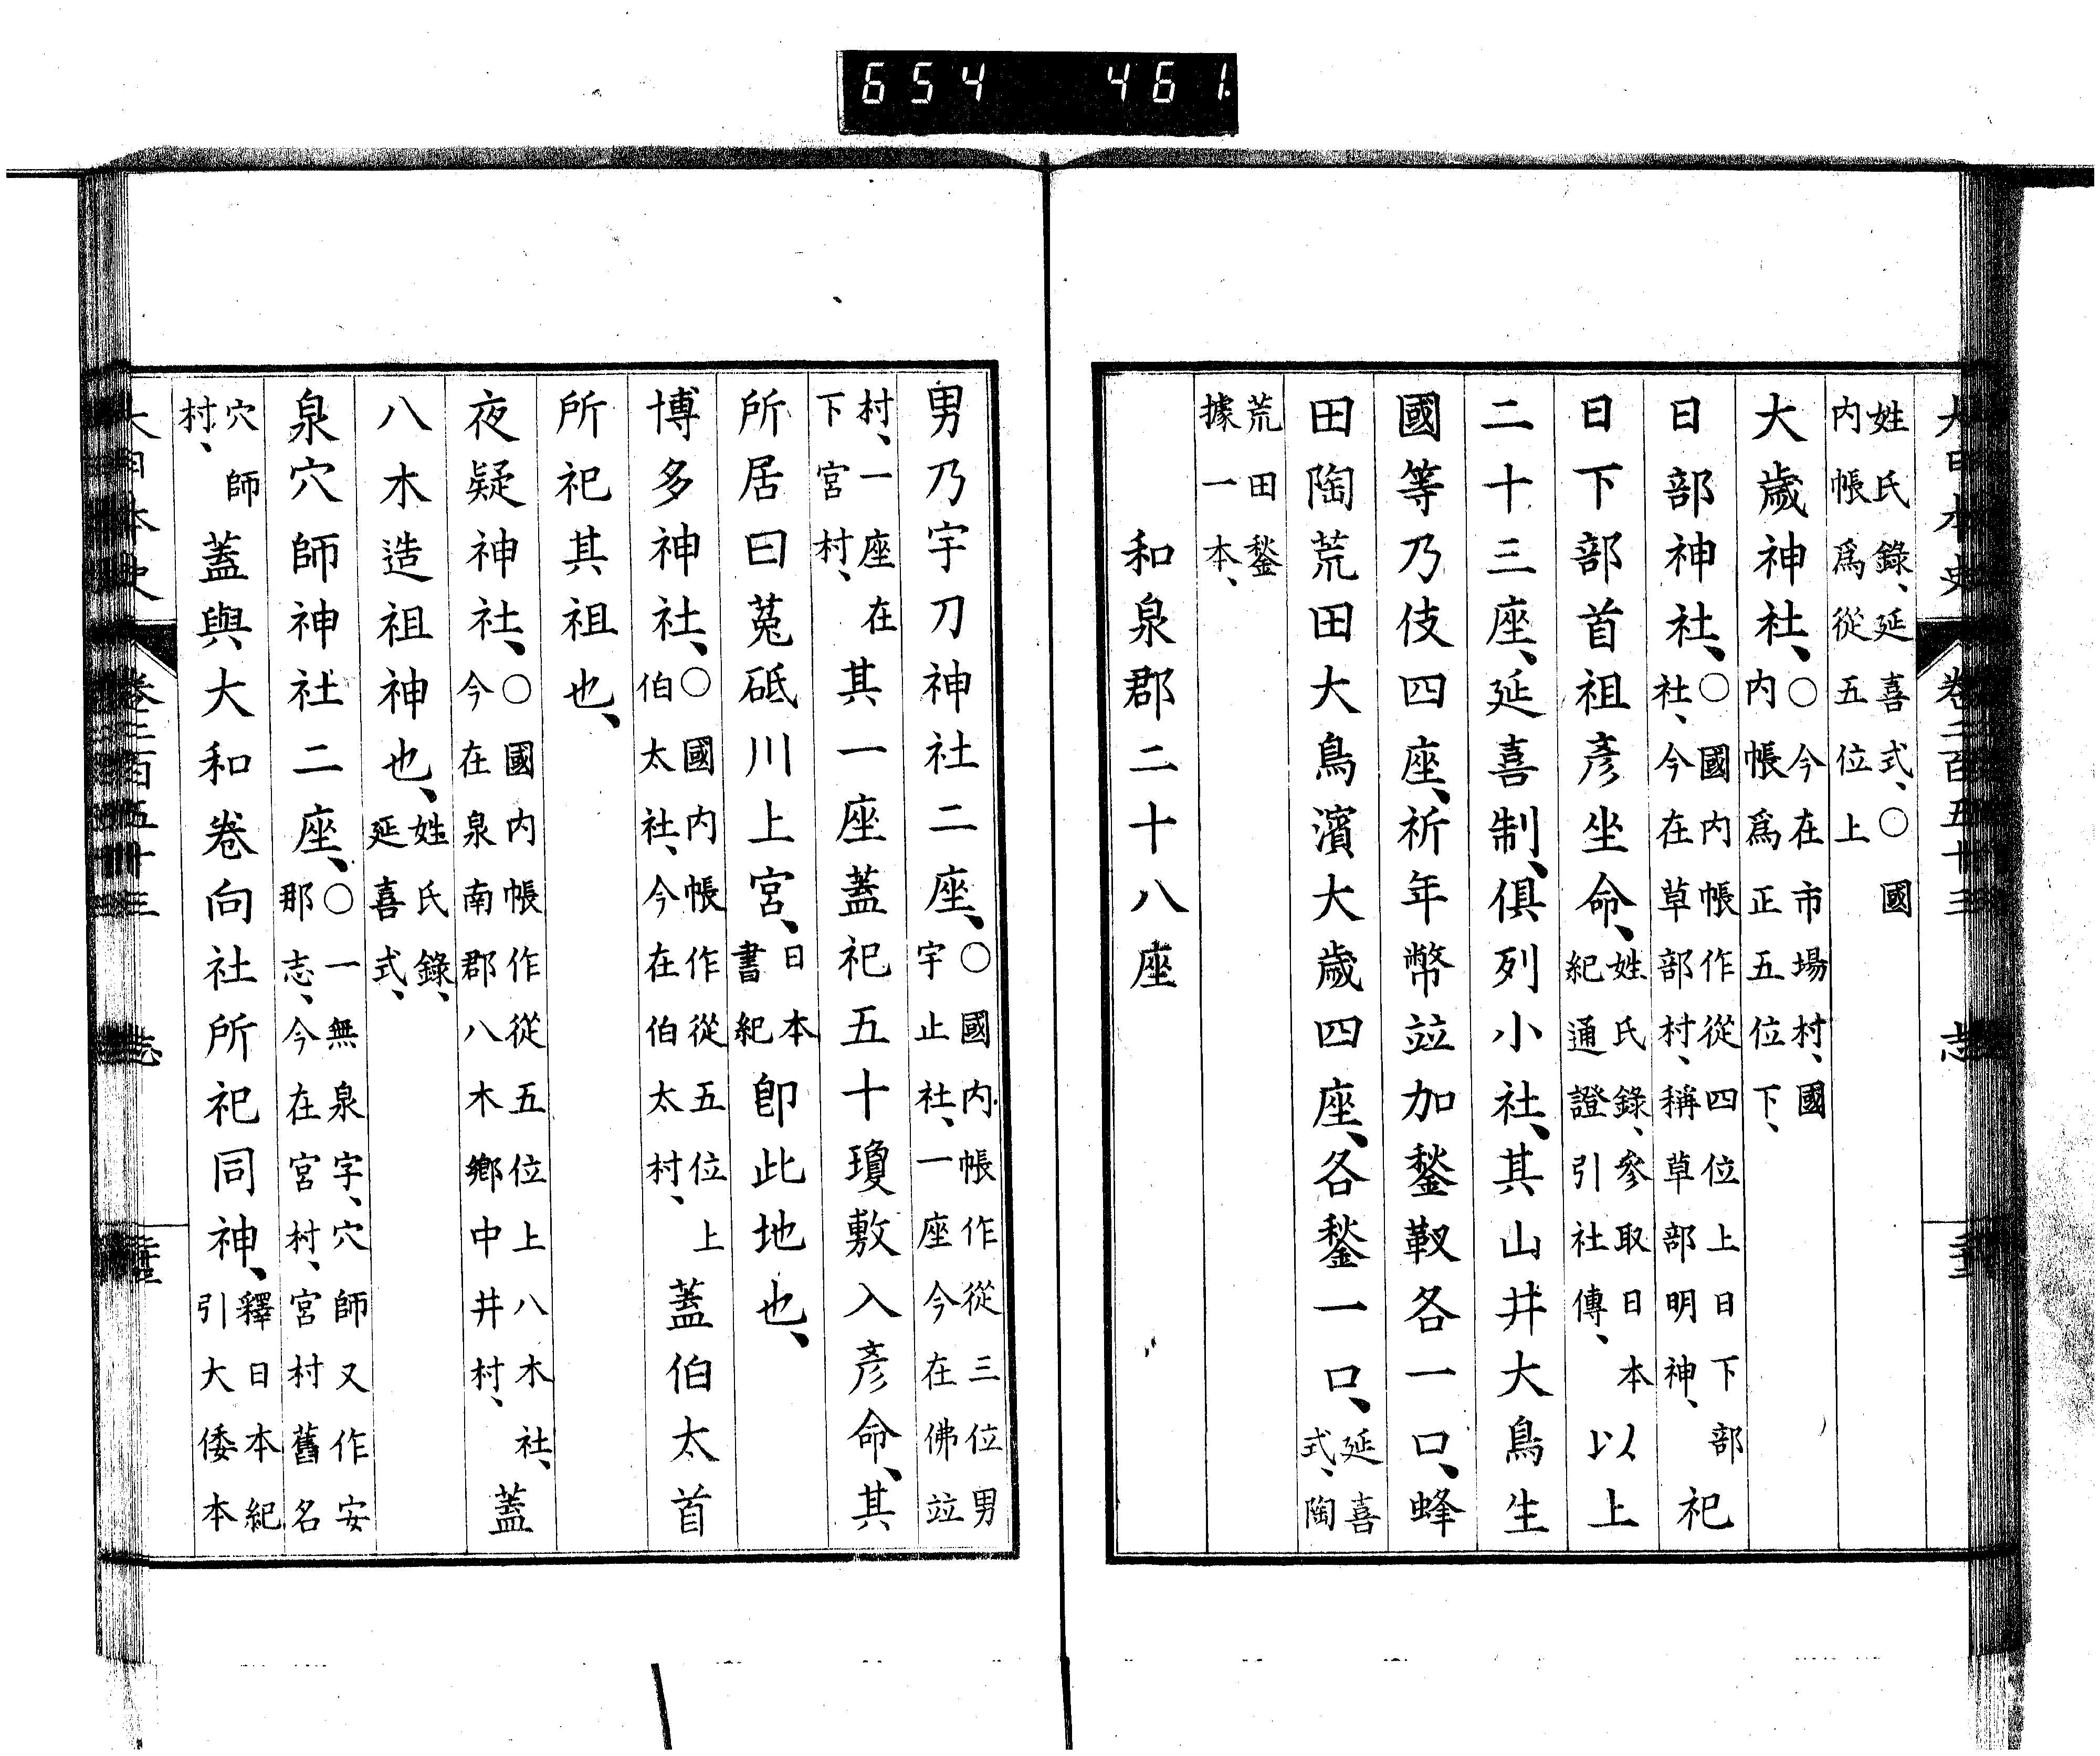 654 461
大日本史 卷二百五十三 志
姓氏錄、延喜式、○國
内帳爲從五位上
大歲神社、○今在市場村、國
内帳爲正五位下、
日部神社、○國内帳作從四位上日下部
社、今在草部村、稱草部明神、祀
日下部首祖彥坐命、姓氏錄、參取日本
紀通證引社傳、以上
二十三座、延喜制、俱列小社、其山井大鳥生
國等乃伎四座、祈年幣竝加鍫靫各一口、蜂
田陶荒田大鳥濱大歲四座、各鍫一口、延喜
式、陶
荒田鍫
據一本、
和泉郡二十八座
男乃宇刀神社二座、○國内帳作從三位男
宇止社、一座今在佛竝
村、一座在
下宮村、其一座蓋祀五十瓊敷入彥命、其
所居曰菟砥川上宮、日本
書紀卽此地也、
博多神社、○國内帳作從五位上
伯太社、今在伯太村、蓋伯太首
所祀其祖也、
夜疑神社、○國内帳作從五位上八木社、
今在泉南郡八木鄉中井村、蓋
八木造祖神也、姓氏錄、
延喜式、
泉穴師神社二座、○一無泉字、穴師又作安
那志、今在宮村、宮村舊名
穴師
村、蓋與大和卷向社所祀同神、釋日本紀
引大倭本
大日本史 卷二百五十三 志